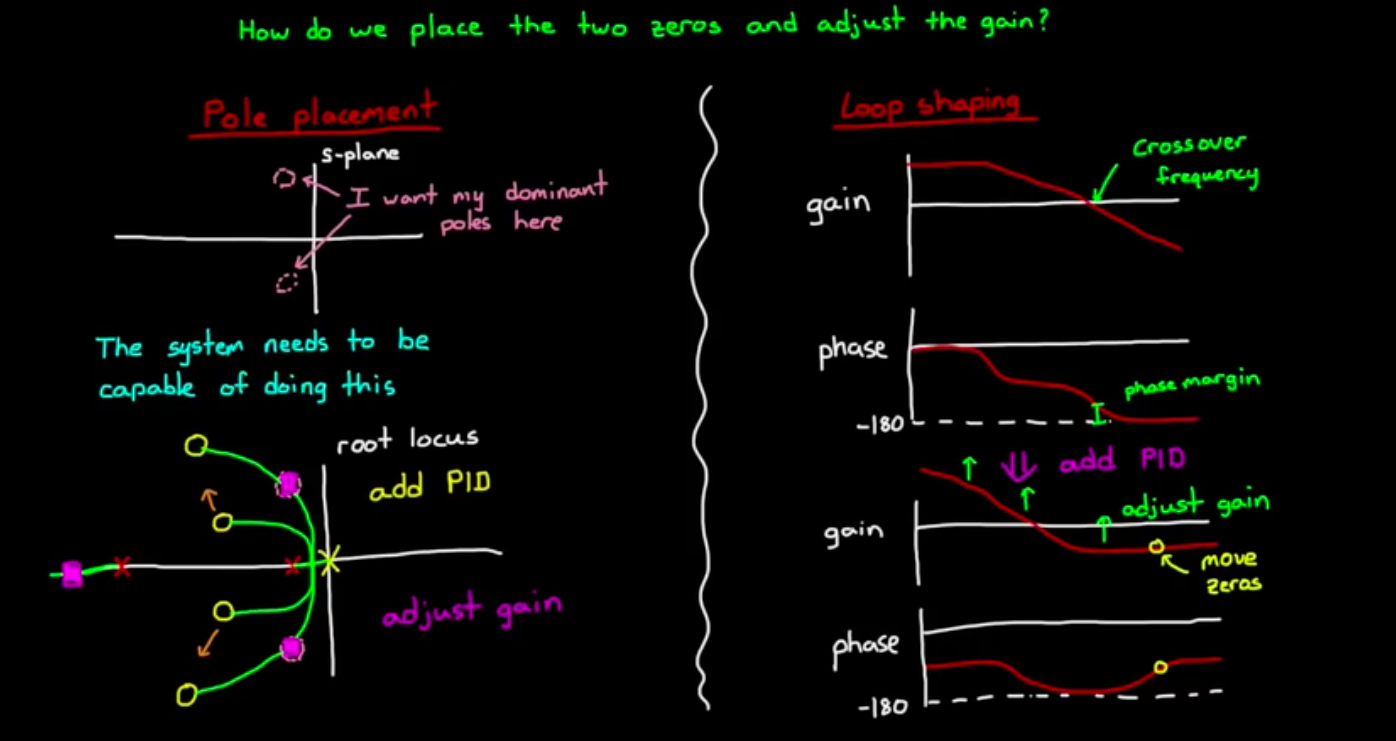 How do we place the two zeros and adjust the gain?
Pole placement
s-plane
I want my dominant
poles here
The system needs to be
capable of doing this
root locus
add PID
adjust gain
Loop shaping
Crossover
frequency
gain
phase
phase margin
-180
add PID
adjust gain
gain
move
zeros
phase
-180